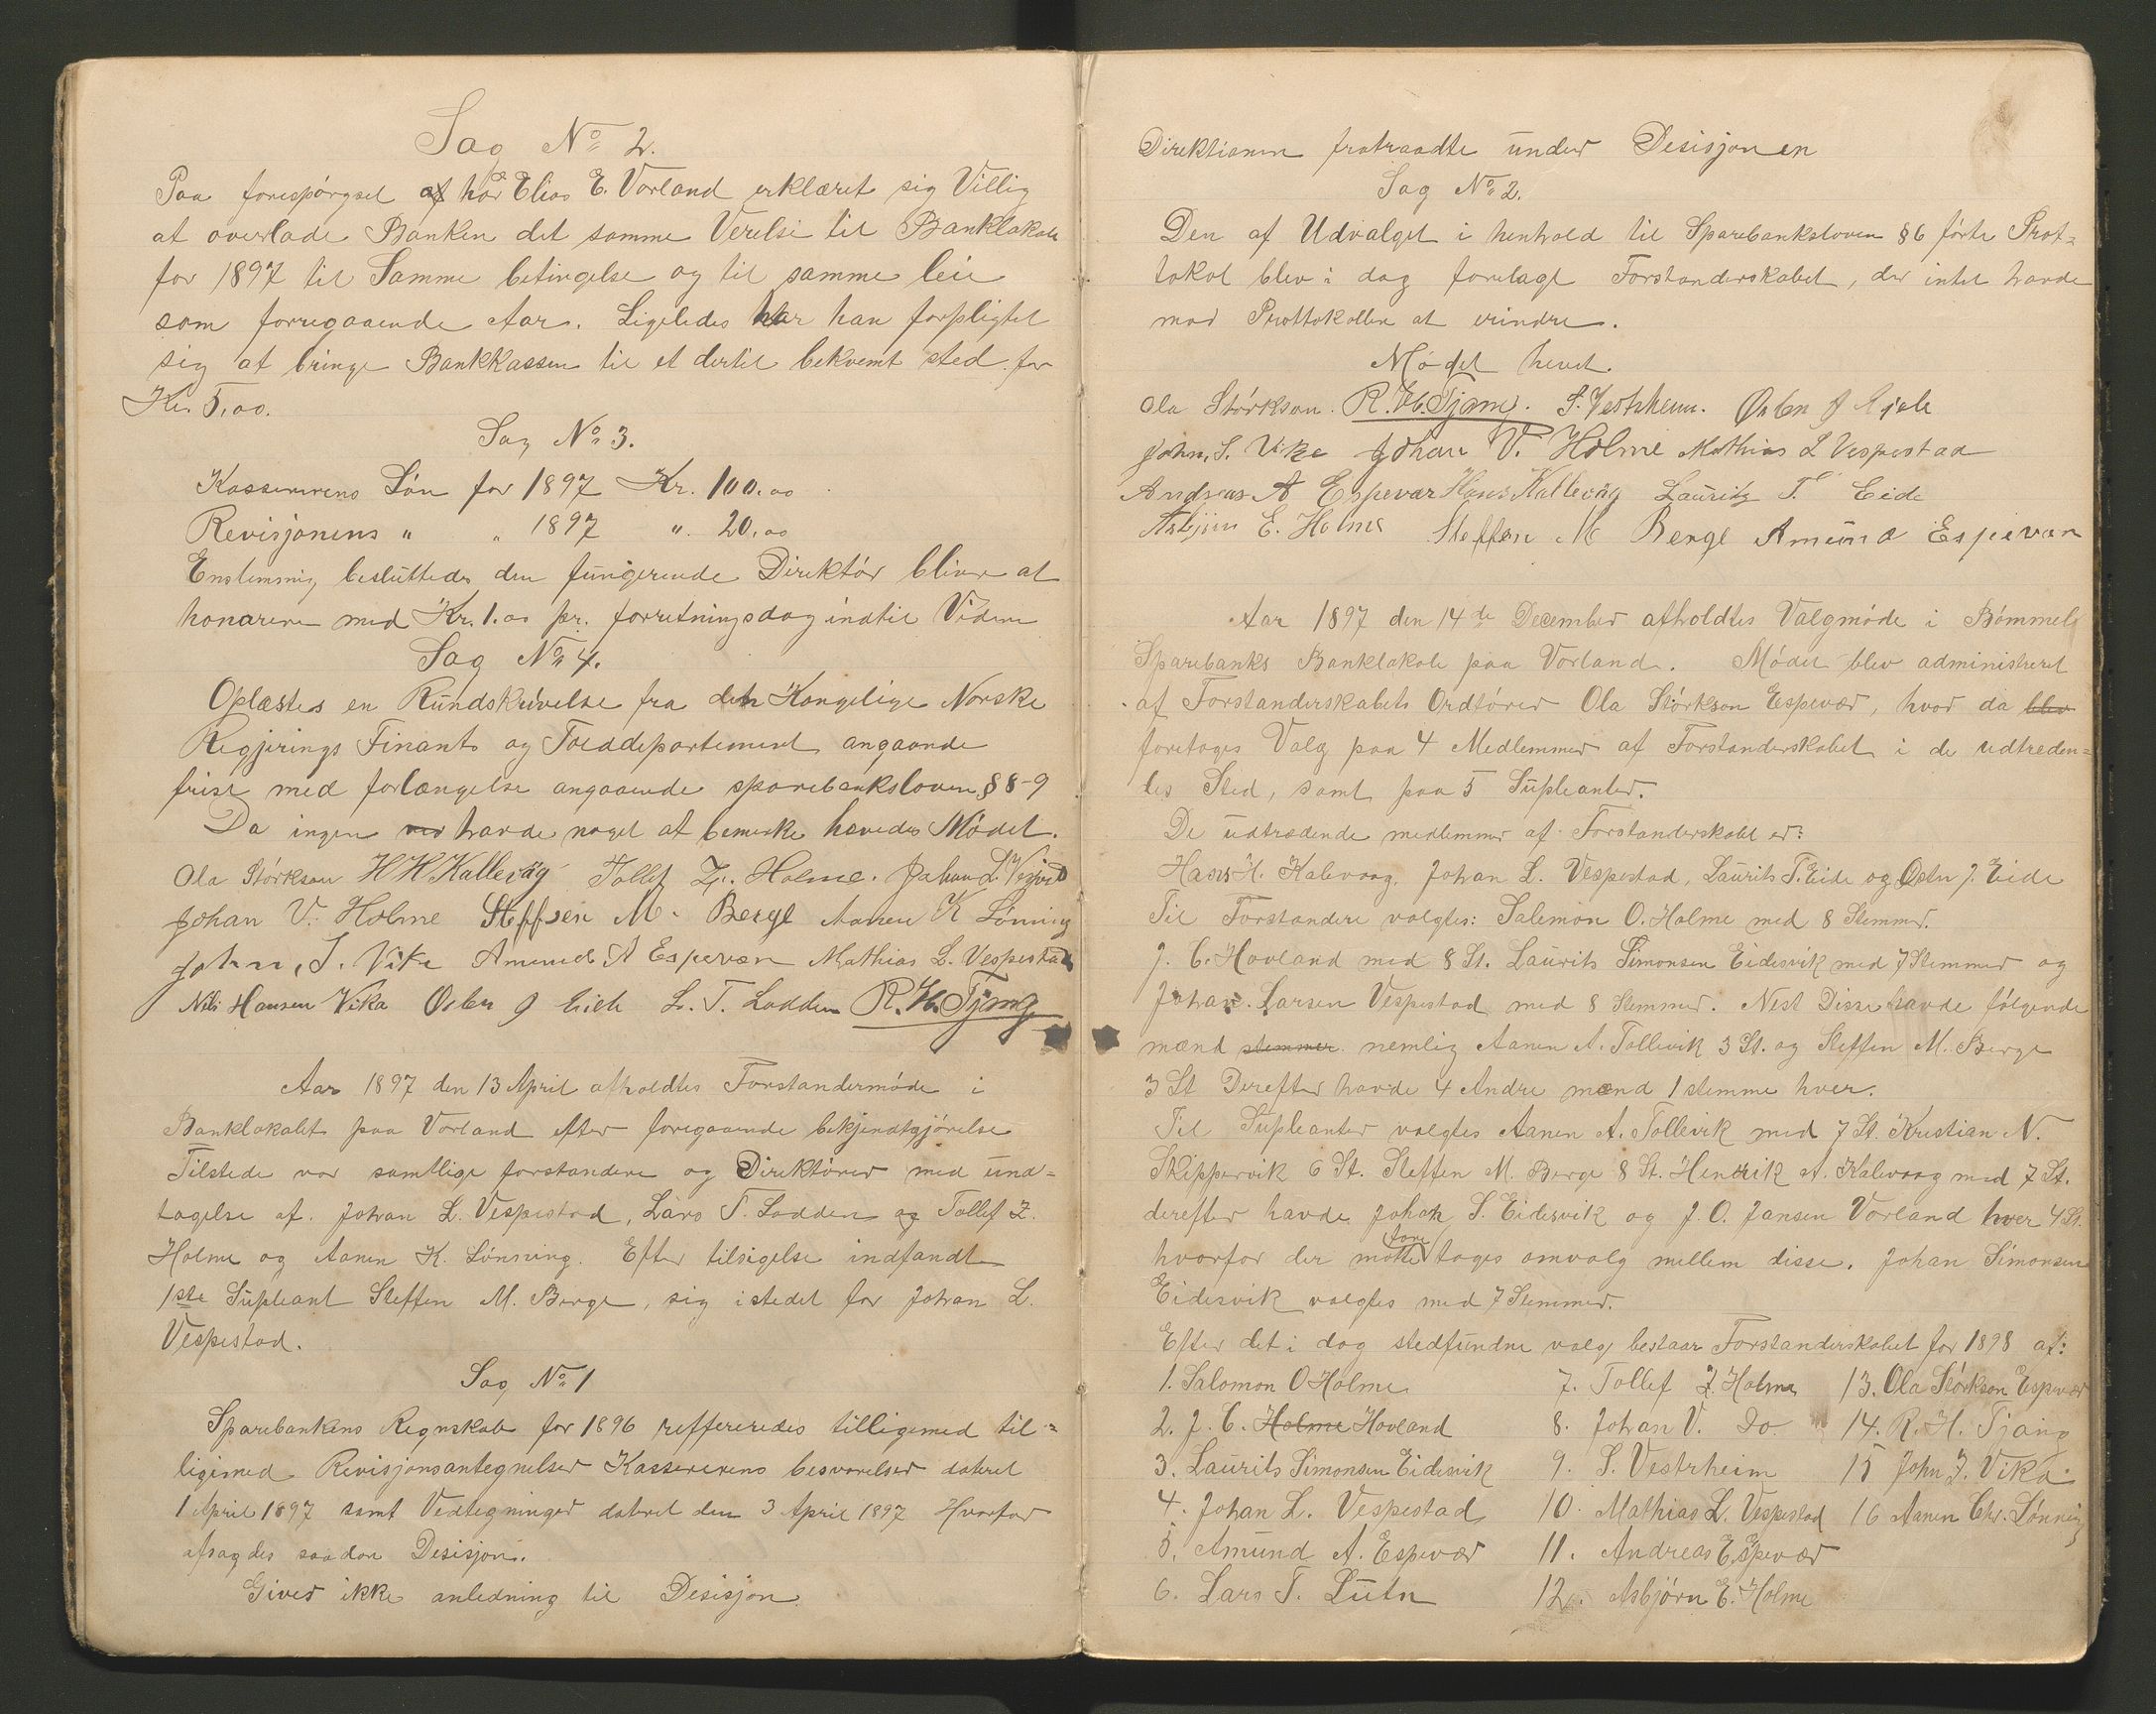 Sag No 2.
Paa forespörgsel har Elias E. Vorland erklæret sig Villig
at overlade Banken det samme Verelse til Banklokale
for 1897 til Samme betingelse og til samme leie
som forregaaende Aar. Ligeledes har han forpligtet
sig at bringe Bankkassen til et dertil bekvemt sted for
Kr. 5,00.
Sag No 3.
Kassererens Lön for 1897 Kr. 100,00
Revisjonens " " 1897 " 20,00
Enstemmig besluttedes den fungerende Direktör bliver at
honorere med Kr. 1.00 pr. forretningsdag indtil Videre
Sag No 4.
Oplæstes en Rundskrivelse fra den Kongelige Norske
Regjerings Finants og Tolddepartement angaaende
frist med forlængelse angaaende sparebanksloven § 8-9
Da ingen havde noget at bemerke hævedes Mödet.
Ola Störkson H H Kallevåg Tollef Z. Holme. Johan L. Vespestad
Johan V. Holme Steffen M. Berge Aanen K Lönning
John, J. Vika Amund A Espevær Mathias L. Vespestad
Nils Hansen Vika Osten J Eide L. T. Lodden R. H. Tjong
Aar 1897 den 13 April afholdtes Forstandermöde i
Banklokalet paa Vorland efter foregaaende bekjendtgjörelse
Tilstede var samtlige forstandere og Direktörer med und=
tagelse af. Johan L. Vespestad, Lars T. Lodden og Tollef Z.
Holme og Aanen K. Lönning. Efter tilsigelse indfandt
1ste Supleant Steffen M. Berge, sig istedet for Johan L.
Vespestad.
Sag No 1
Sparebankens Regnskab for 1896 reffereredes tilligemed til=
ligemed Revisjonsantegnelser Kassererens besvarelser dateret
1 April 1897 samt Vedtegninger dateret den 3 April 1897 Hvorfor
afsagdes saadan Desisjon.
Giver ikke anledning til Desisjon.
Direktionen fratraadte under Desisjonen
Sag No 2.
Den af Udvalget i henhold til Sparebanksloven § 6 förte Prot=
tokol blev i dag forelagt Forstanderskabet, der intet havde
mod Prottokollen at erindre.
Mödet hevet.
Ola Störkson. R. H. Tjong. S. Vestrheim. Osten J Eide
John, J. Vika Johan V. Holme Mathias L Vespestad
Andreas A Espevær Hans Kallevåg Lauritz T. Eide
Asbjörn E. Holme Steffen M Berge Amund Espevær
Aar 1897 den 14de December afholdtes Valgmöde i Bömmel
Sparebanks Banklokale paa Vorland. Mödet blev administreret
af Forstanderskabets Ordförer Ola Störkson Espevær, hvor da blev
foretoges Valg paa 4 Medlemmer af Forstanderskabet i de udtreden=
des Sted, samt paa 5 Supleanter.
De udtrædende medlemmer af Forstanderskabet er:
Hans H. Kalevaag, Johan L. Vespestad, Laurits T. Eide og Osten J. Eide
Til Forstandere valgtes: Salemon O. Holme med 8 Stemmer.
J. C. Hovland med 8 St. Laurits Simonsen Eidesvik med 7 Stemmer og
Johan. Larsen Vespestad med 8 Stemmer. Nest Disse havde fölgende
mænd stemmer nemlig Aanen A. Tollevik 3 St. og Steffen M. Berge
3 St Derefter havde 4 Andre mænd 1 stemme hver.
Til Supleanter valgtes Aanen A. Tollevik med 7 St. Kristian N.
Skippervik 6 St. Steffen M. Berge 8 St. Henrik A. Kalvaag med 7 St.
derefter havde Johan S. Eidesvik og J. O. Jansen Vorland hver 4 St.
hvorfor der motte foretages omvalg mellem disse. Johan Simonsen
Eidesvik valgtes med 7 Stemmer.
Efter det i dag stedfundne valg bestaar Forstanderskabet for 1898 af:
1. Salomon O Holme 7. Tollef Z. Holme 13. Ola Störkson Espevær
2. J. C. Holme Hovland 8. Johan V. Do 14. R. H. Tjong
3. Laurits Simonsen Eidesvik 9. S. Vestrheim 15 John J. Vika
4. Johan L. Vespestad 10. Mathias L. Vespestad 16 Aanen Chr. Lönning
5. Amund A. Espevær 11. Andreas Espevær
6. Lars T. Lutn 12. Asbjörn E. Holme